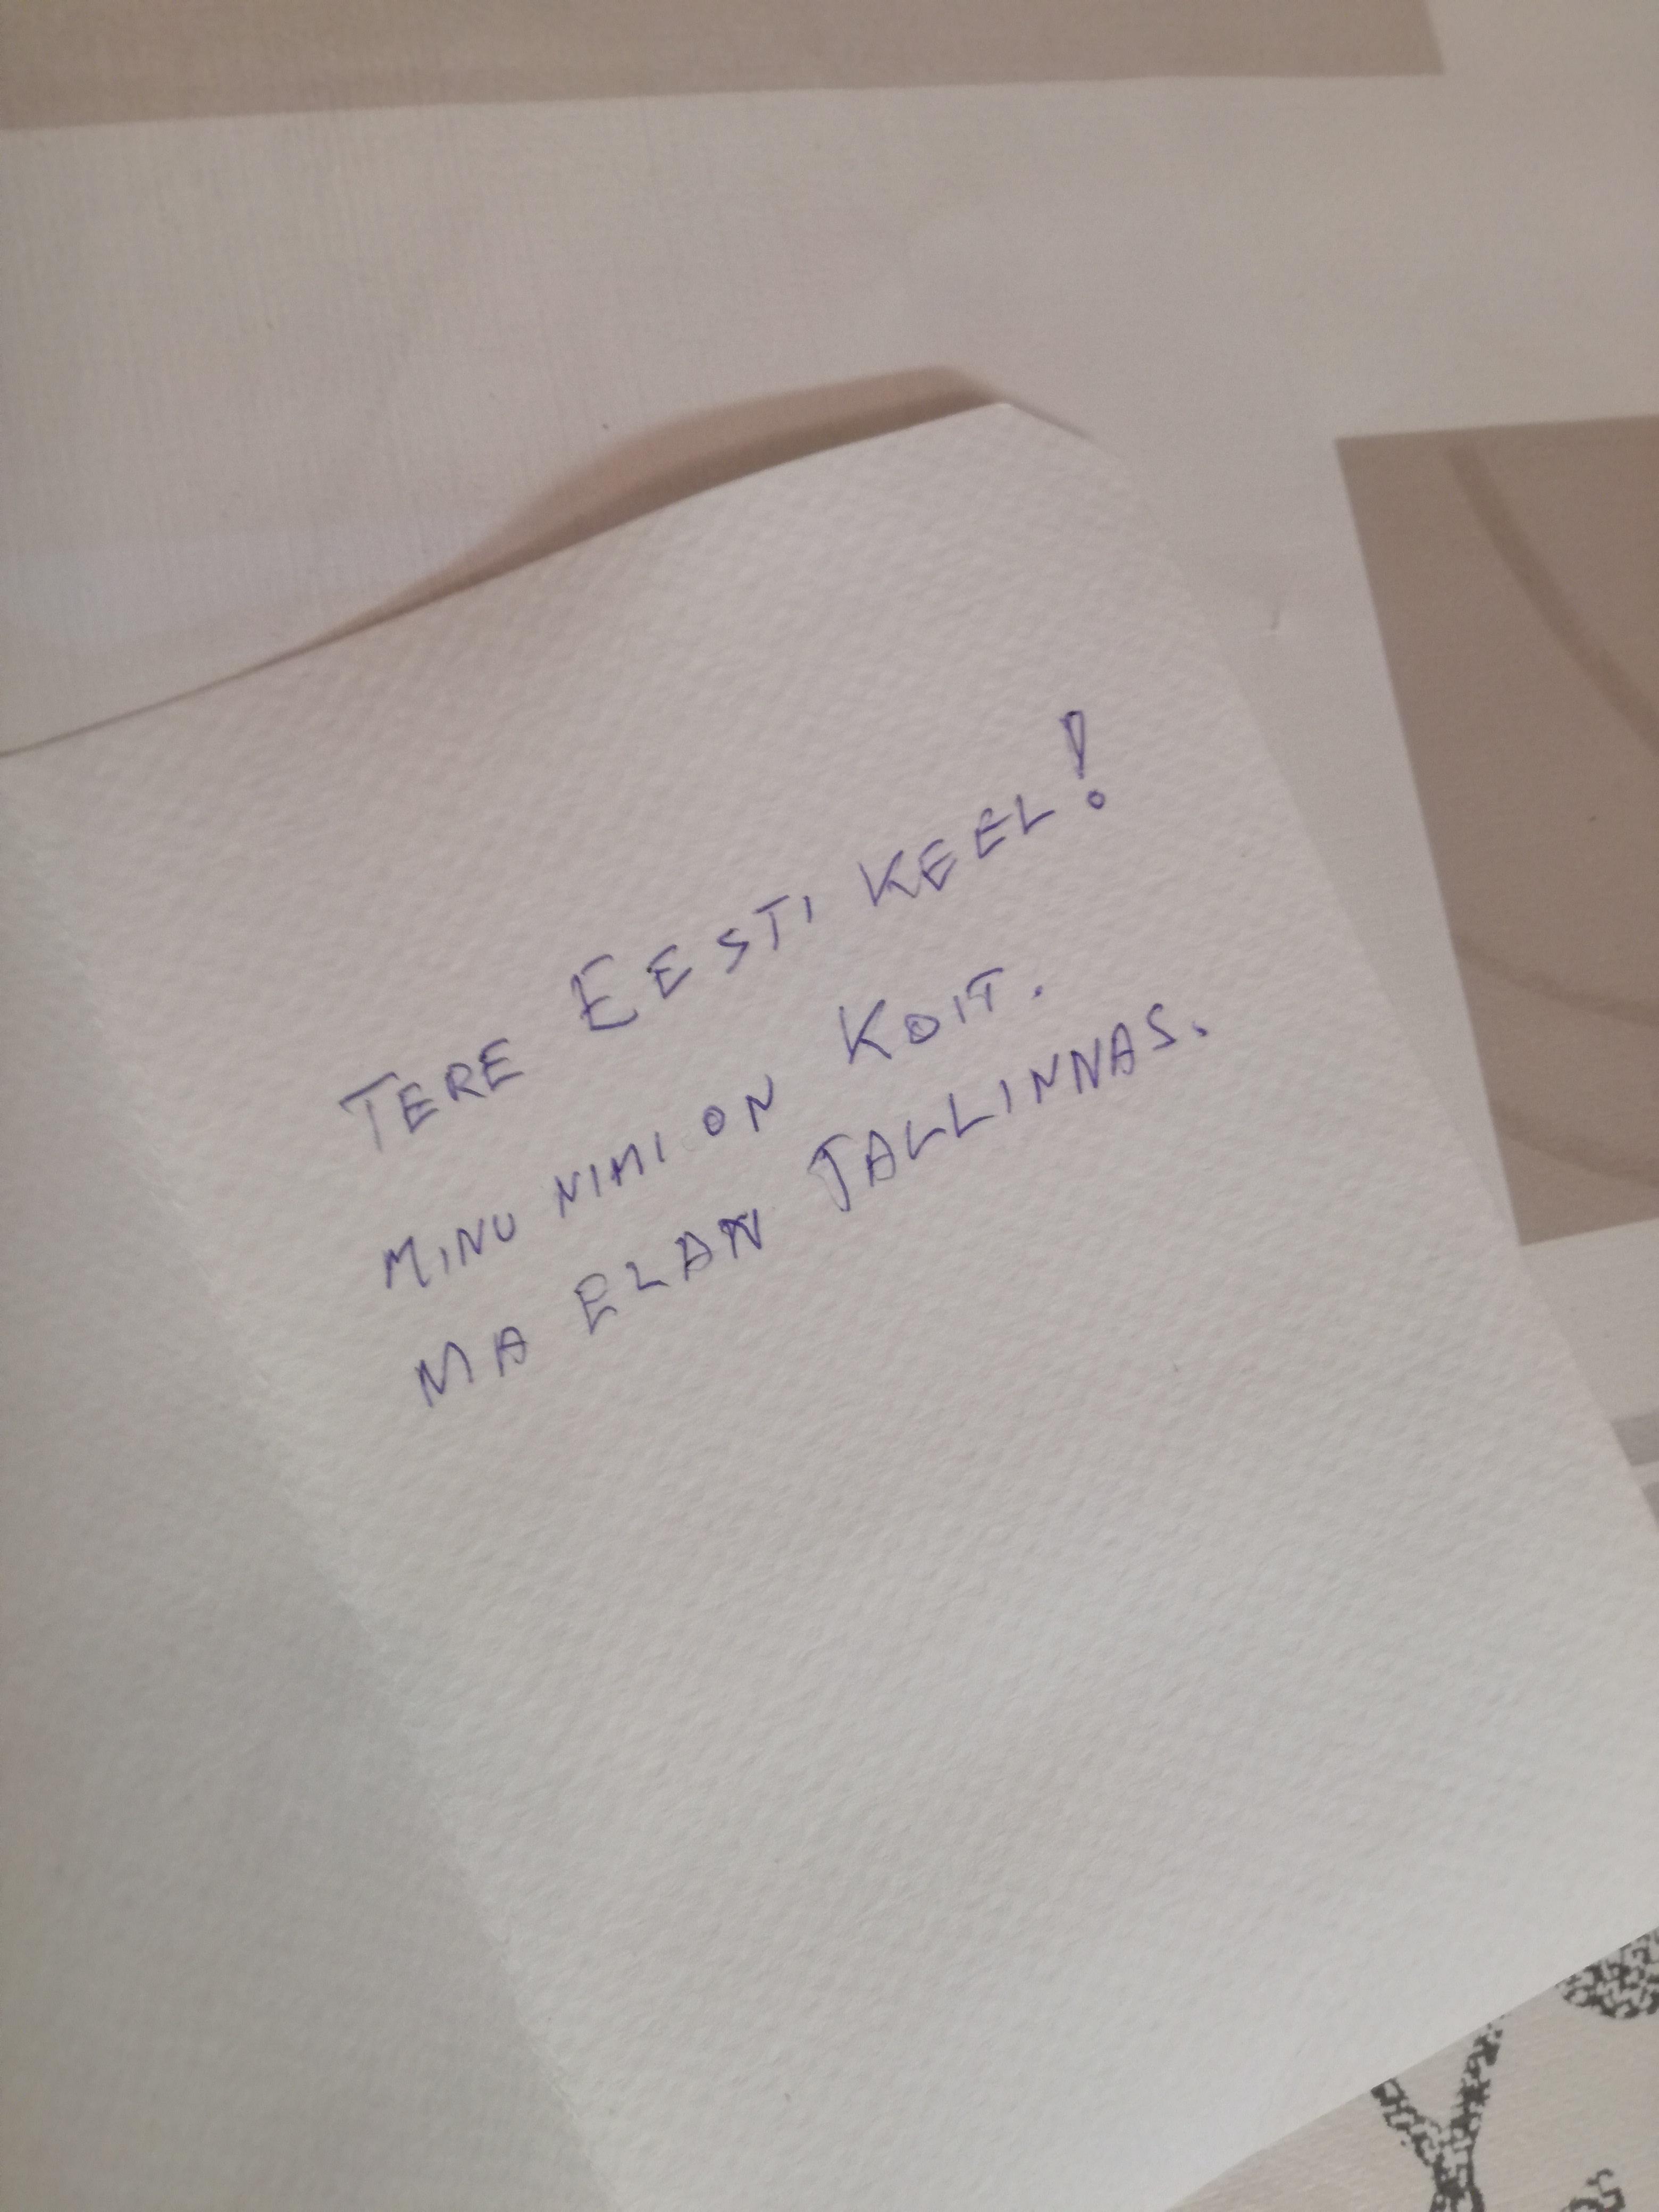 TERE EESTI KEEL!
MINU NIMI ON KOIT.
MA ELAN TALLINNAS.